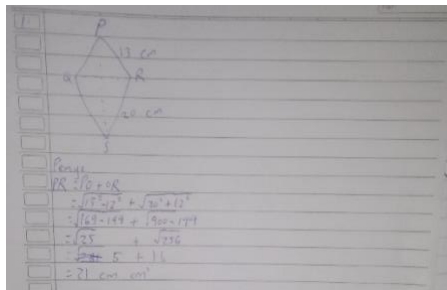 1.
P
13 cm
Q
R
20 cm
S
Penye
PR = PO + OR
= √13² - 12² + √20² + 12²
= √169 - 144 + √400 - 144
= √25 + √256
= 5 + 16
= 21 cm cm²